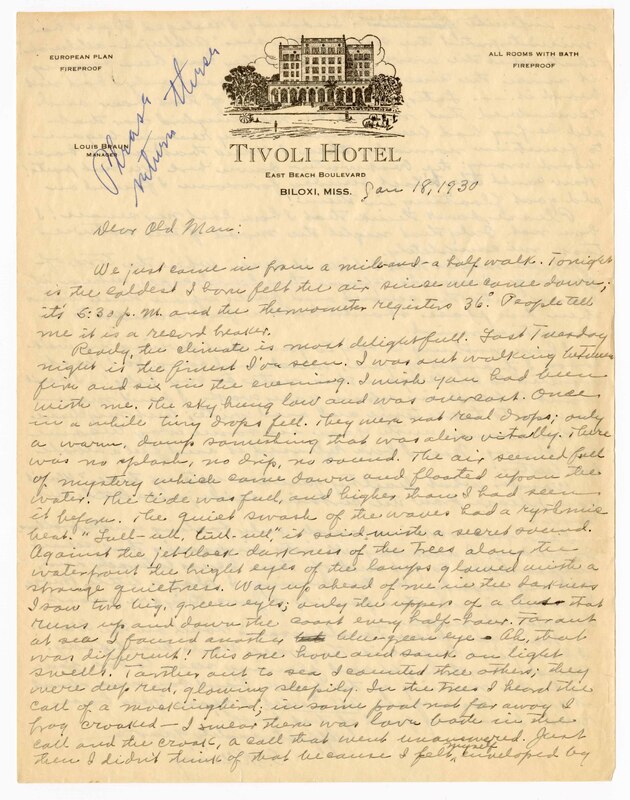 EUROPEAN PLAN
FIREPROOF
ALL ROOMS WITH BATH
FIREPROOF
Please return these
LOUIS BRAUN
MANAGER
TIVOLI HOTEL
EAST BEACH BOULEVARD
BILOXI, MISS.
Jan 18, 1930
Dear Old Man:
We just came in from a mile-and-a half walk. Tonight
is the coldest I have felt the air since we came down;
it's 5:30 p.m. and the thermometer registers 36°. People tell
me it is a record breaker.
Really, the climate is most delightful. Last Tuesday
night is the finest I've seen. I was out walking between
five and six in the evening. I wish you had been
with me. The sky hung low and was overcast. Once
in a while tiny drops fell. They were not real drops; only
a warm, damp something that was alive vitally. There
was no splash, no drip, no sound. The air seemed full
of mystery which came down and floated upon the
water. The tide was full, and higher than I had seen
it before. The quiet swash of the waves had a rythmic
beat. "Lull-ull, lull-ull," it said with a secret sound.
Against the jet black darkness of the trees along the
waterfront the bright eyes of the lamps glowed with a
strange quietness. Way up ahead of me in the darkness
I saw two big, green eyes; only the uppers of a bus that
runs up and down the coast every half-hour. Far out
at sea I found another blue-green eye. Ah, that
was different! This one hove and sank on light
swells. Farther out to sea I counted three others; they
were deep red, glowing sleepily. In the trees I heard the
call of a mockingbird; in some pool not far away a
frog croaked – I swear there was love both in the
call and the croak, a call that went unanswered. Just
then I didn't think of that because I felt myself enveloped by